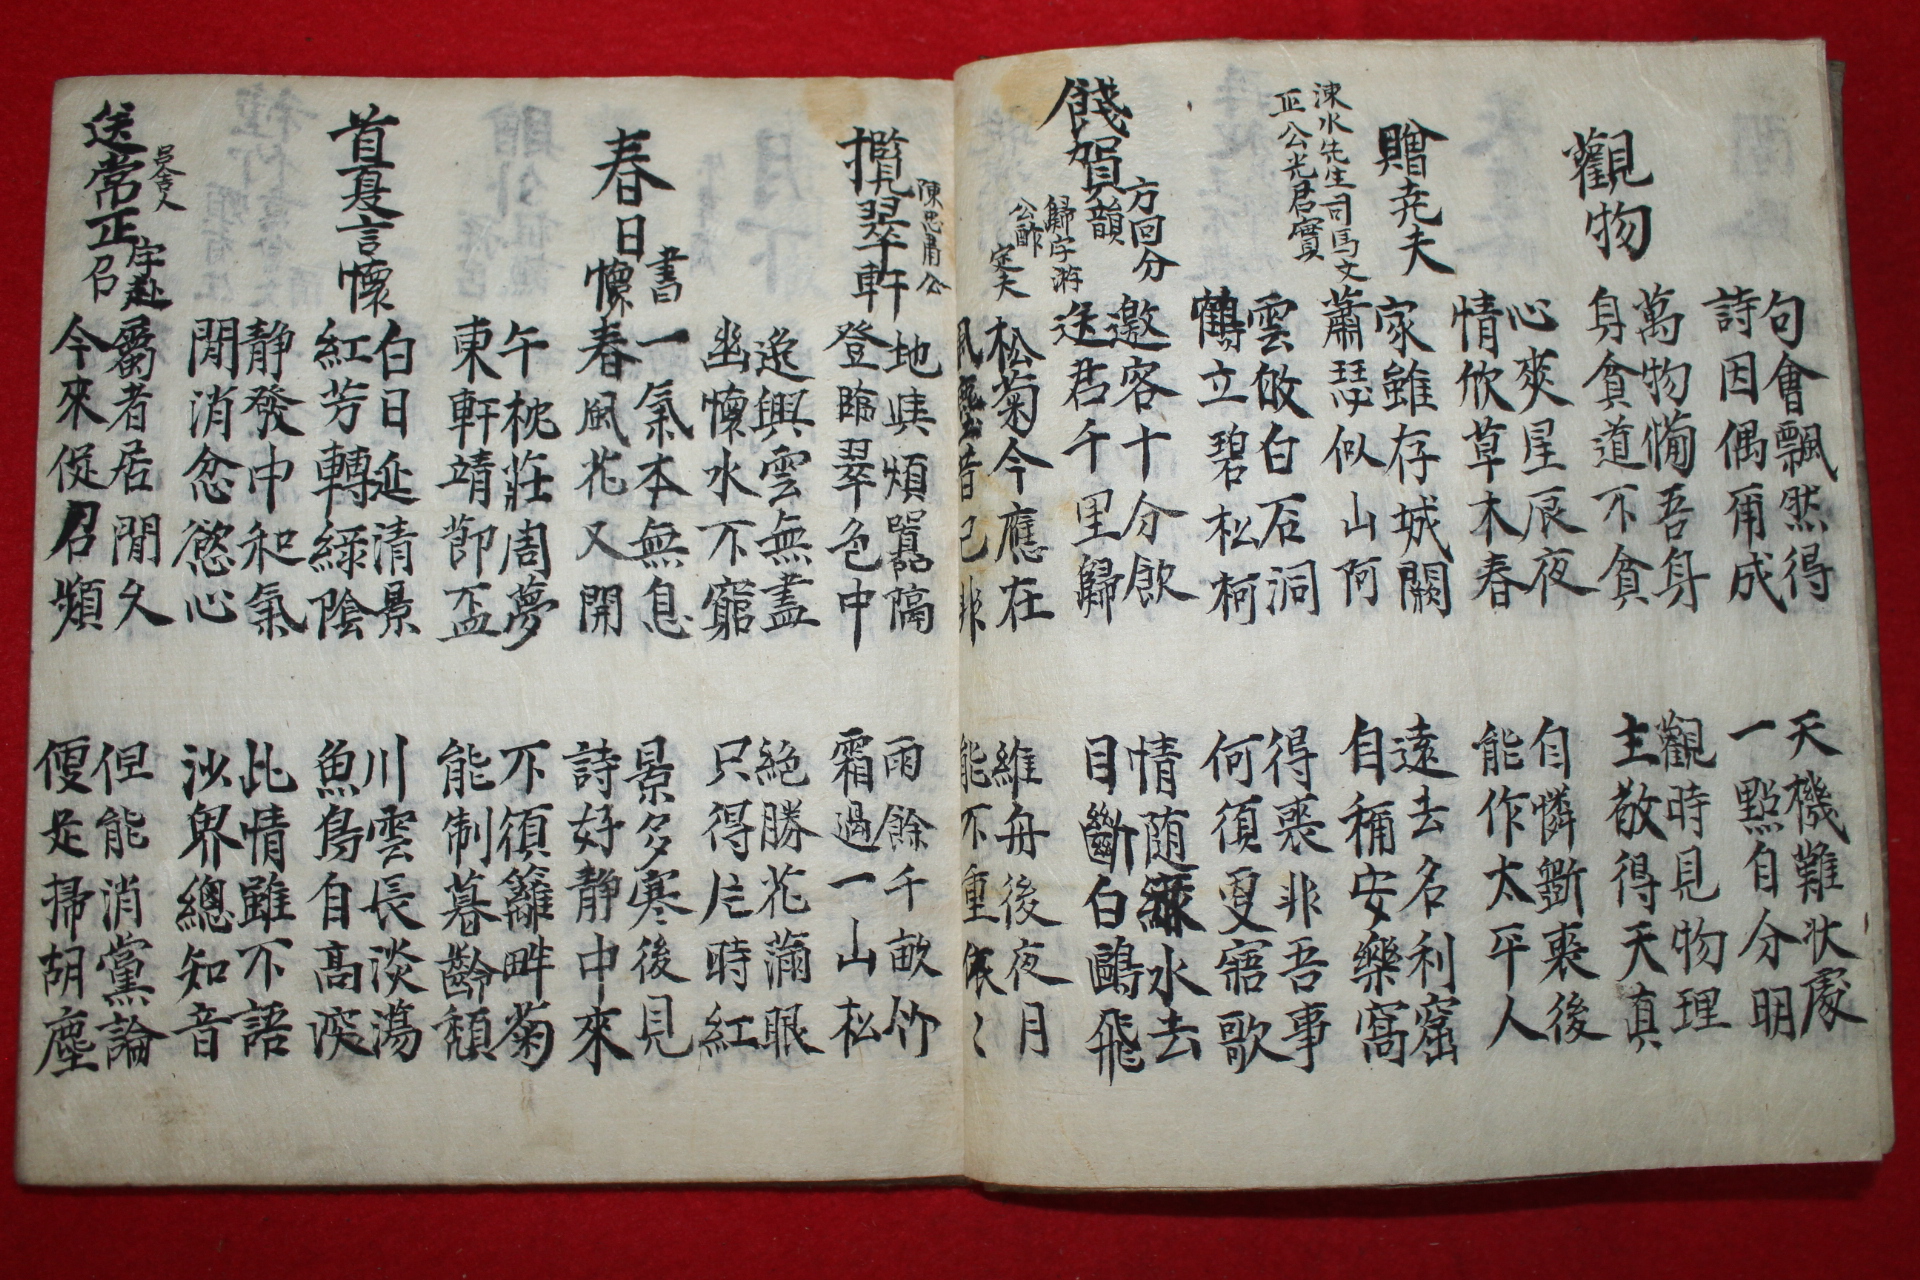 句會飄然得
詩因偶爾成
天機難狀處
一點自分明
觀物
萬物備吾身
身貧道不貧
觀時見物理
主敬得天真
心爽星辰夜
情忺草木春
自憐斲喪後
能作太平人
贈堯夫
涑水先生司馬文
正公光君實
家雖存城闕
蕭瑟似山阿
遠去名利窟
自稱安樂窩
雲攲白石洞
鶴立碧松柯
得喪非吾事
何須更寤歌
餞賀方回分韻歸字
游公酢定夫
邀客十分飲
送君千里歸
情随綠水去
目斷白鷗飛
松菊今應在
風塵昔已非
維舟後夜月
能不重依〻
攬翠軒
陳忠肅公
地與煩囂隔
登臨翠色中
雨餘千畝竹
霜過一山松
逸興雲無盡
幽懷水不窮
絶勝花滿眼
只得片時紅
春日書懷
一氣本無息
春風花又開
景多寒後見
詩好靜中來
午枕莊周夢
東軒靖節盃
不須籬畔菊
能制暮齡頹
首夏言懷
白日延清景
紅芳轉綠陰
川雲長淡蕩
魚鳥自高深
靜發中和氣
閒消忿慾心
此情雖不語
沙界總知音
送常正字赴召
呂舍人
屬者居閒久
今來促召頻
但能消黨論
便足掃胡塵